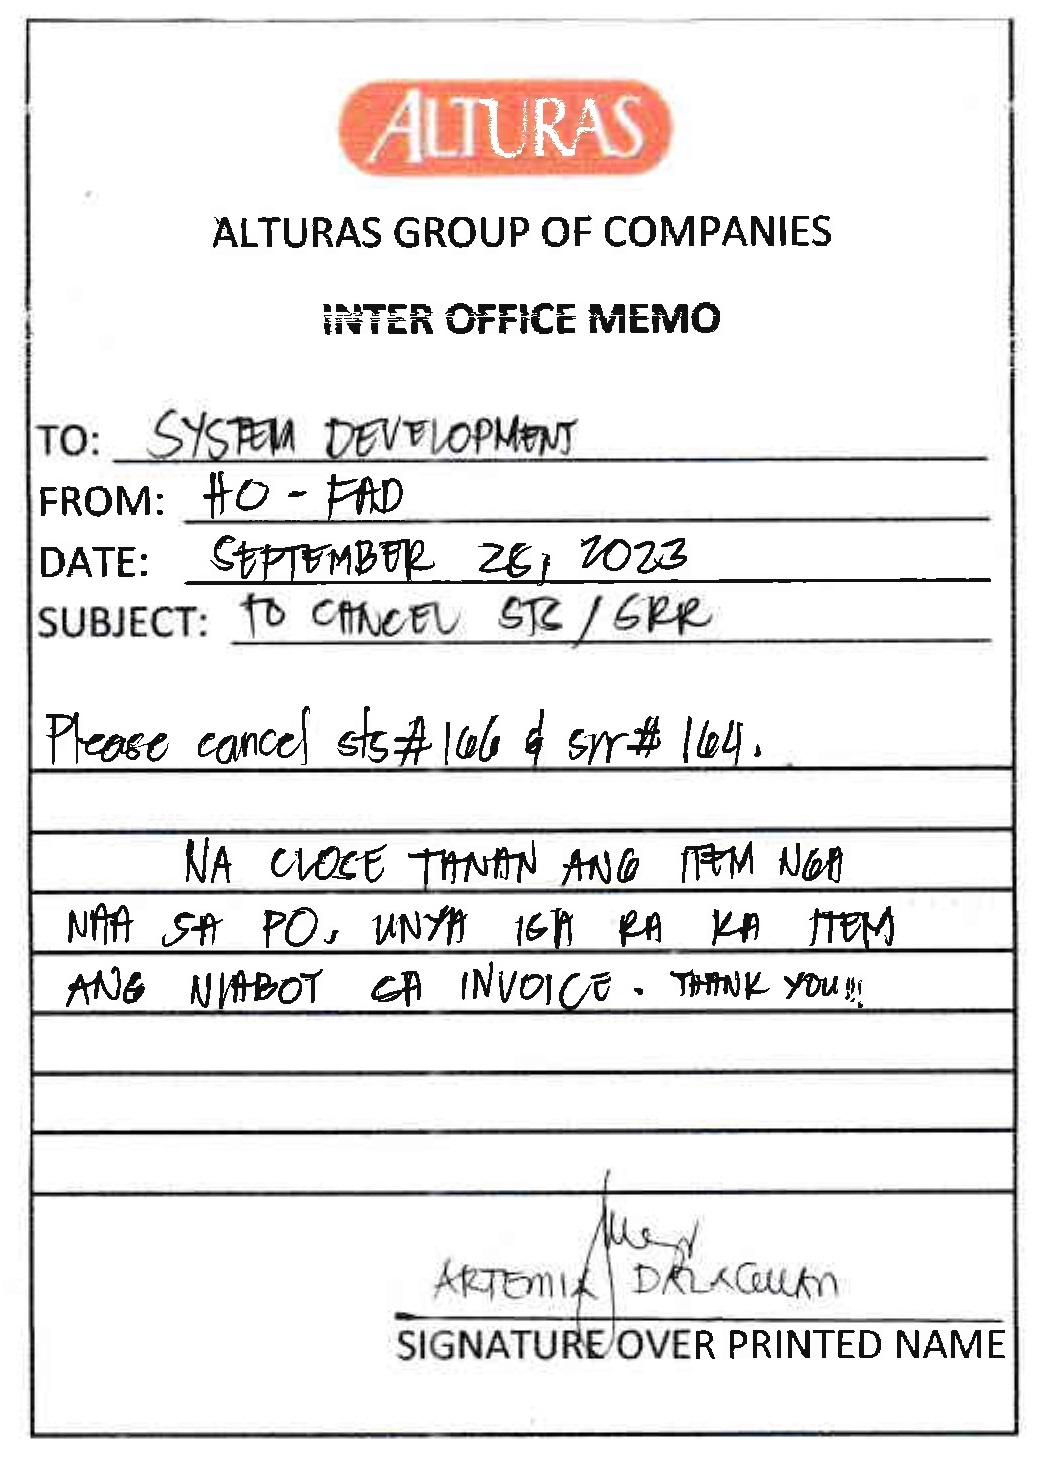 ALTURAS
ALTURAS GROUP OF COMPANIES
INTER OFFICE MEMO
TO: SYSTEM DEVELOPMENT
FROM: HO - FAD
DATE: SEPTEMBER 26, 2023
SUBJECT: TO CANCEL STS / SRR
Please cancel sts# 166 & srr# 164.
NA CLOSE TANAN ANG ITEM NGA
NAA SA PO, UNYA ISA RA KA ITEM
ANG NIABOT SA INVOICE. THANK YOU!!!
ARTEMIA
SIGNATURE OVER PRINTED NAME